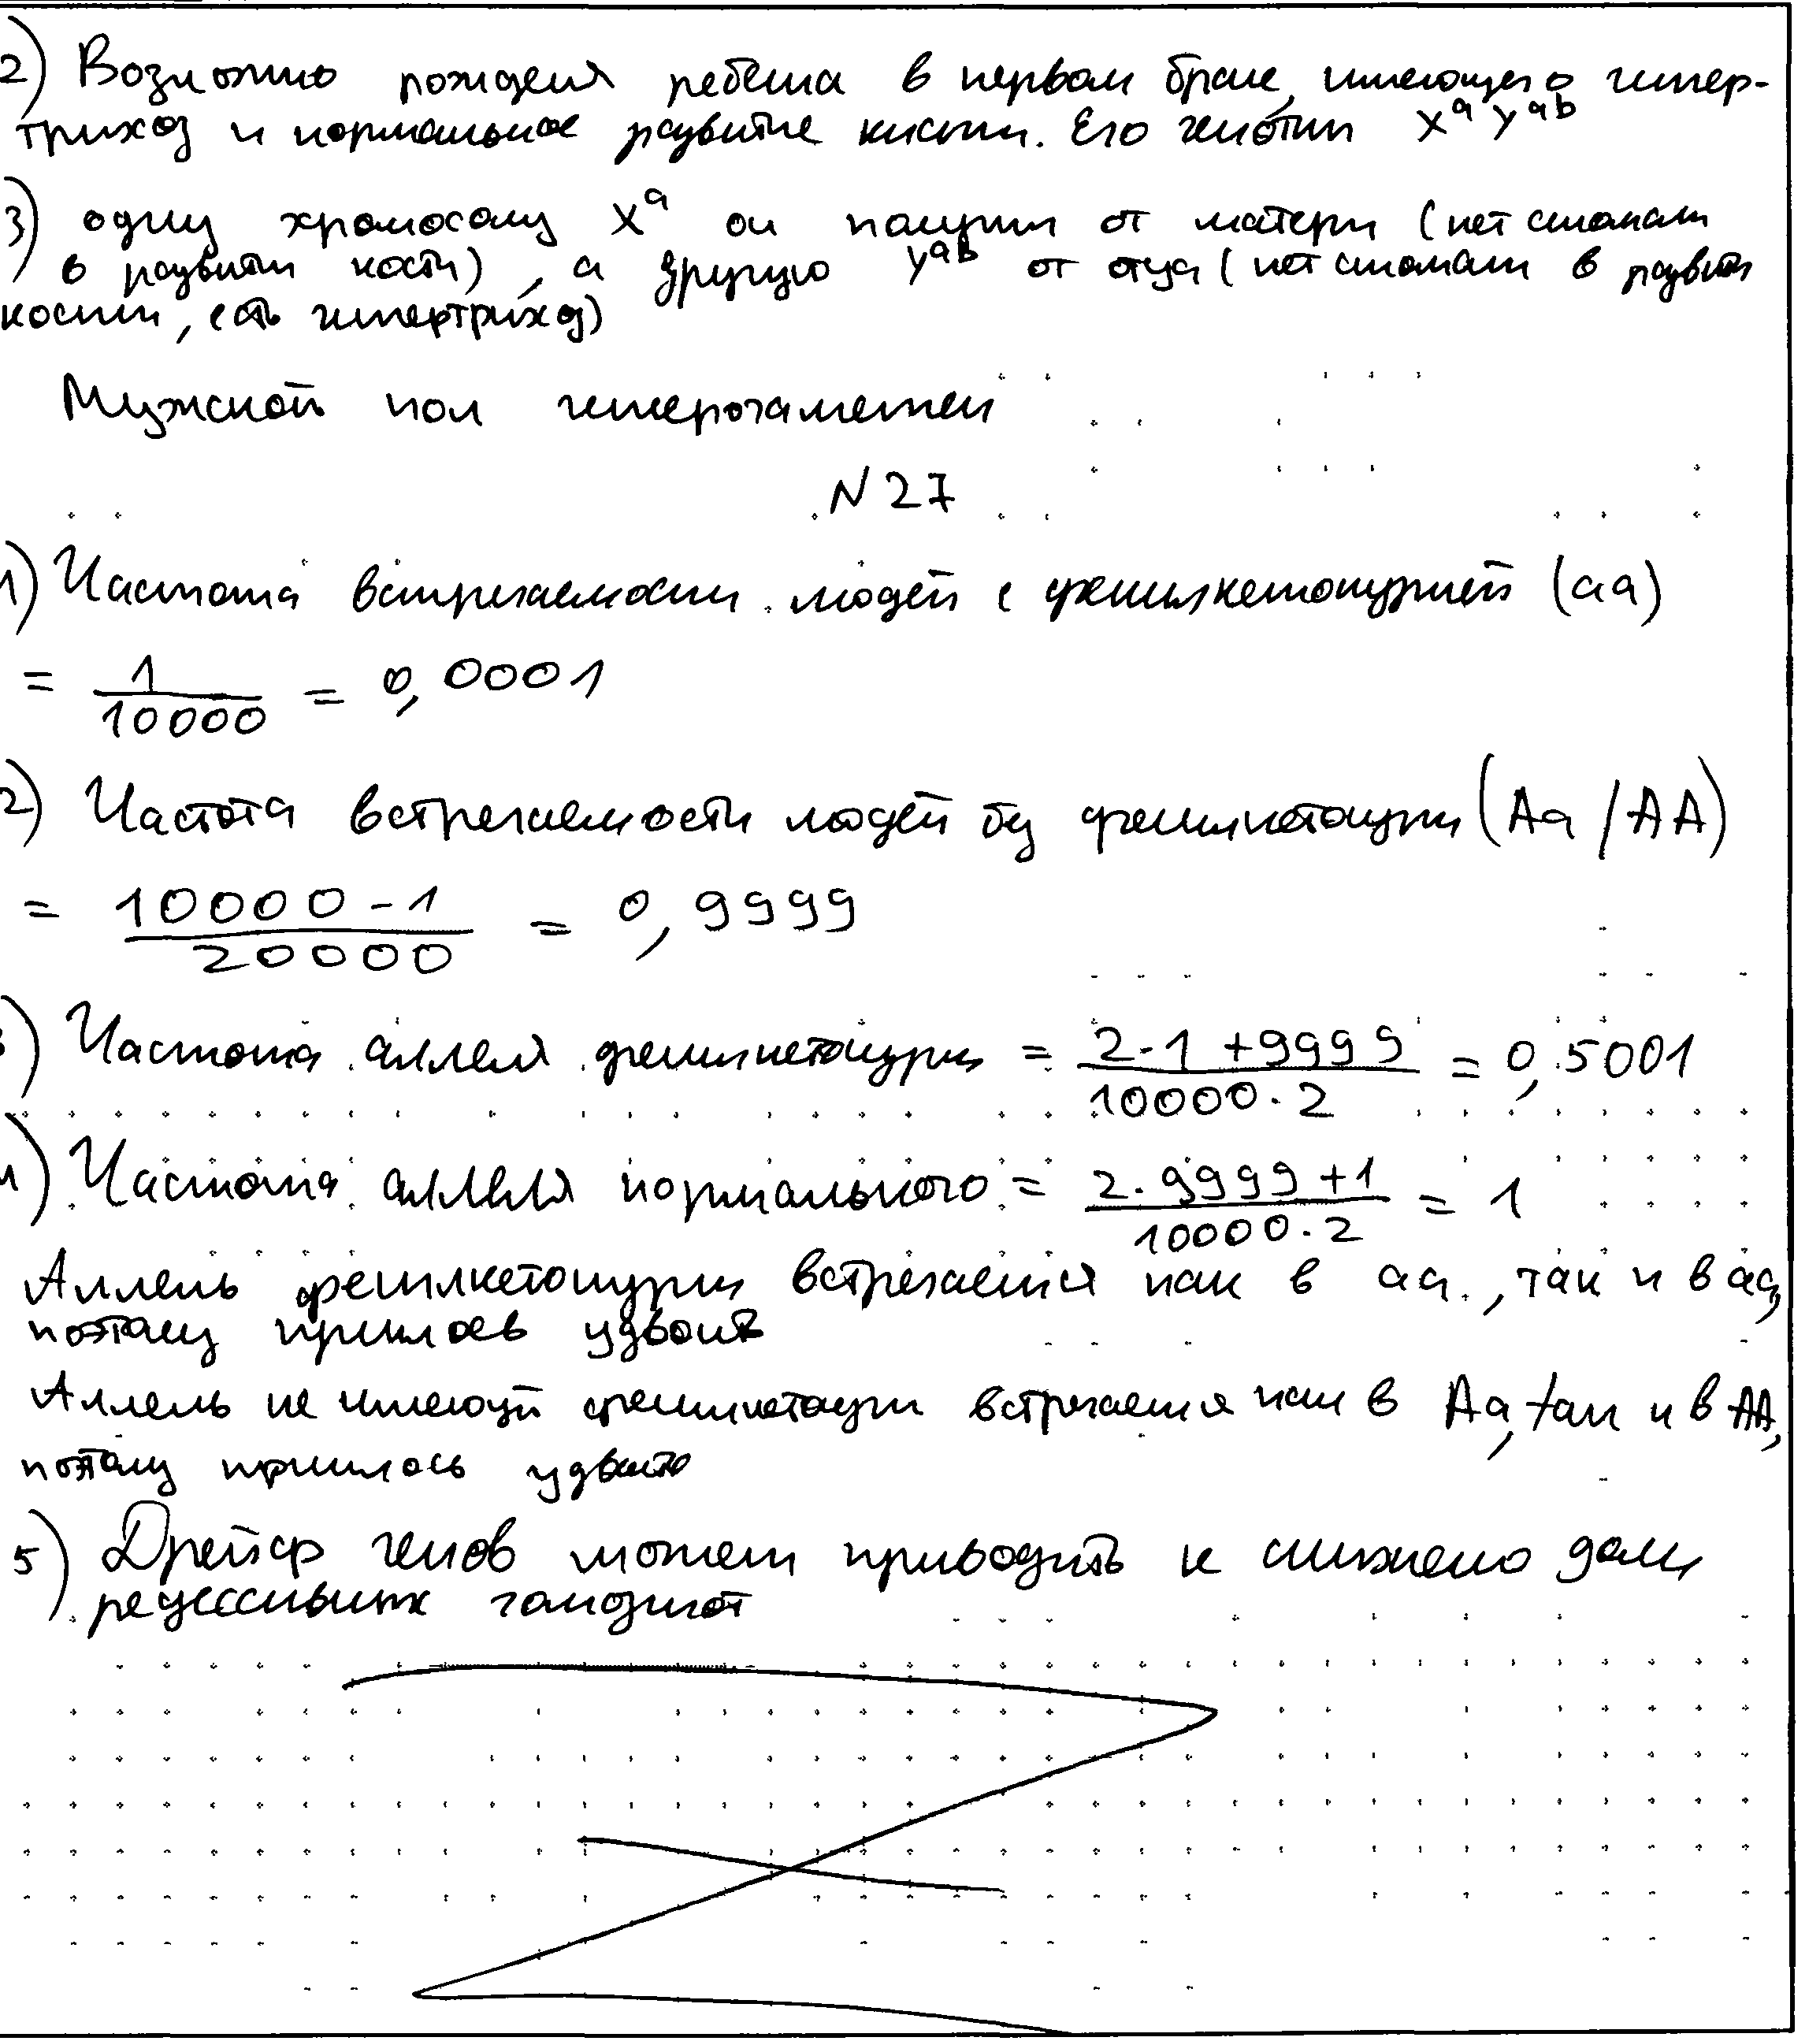 2) Возможно рождеия ребёнка в первом браке, имеющего гипер-
трихоз и нормальное развитие кисти. Его генотип X^a Y^ab
3) одну хромосому X^a он получил от матери (нет аномали
в развити кости), а другую Y^ab от отца (нет аномали в развити
кости, есть гипертрихоз)
Мужской пол гетерогаметен
N 27
1) Частота встречаемости людей с фенилкетонурией (aa)
= 1/10000 = 0,0001
2) Частота встречаемости людей без фенилкетонури (Aa / AA)
= (10000 - 1)/20000 = 0,9999
3) Частота аллеля фенилкетонури = (2·1 + 9999)/(10000·2) = 0,5001
4) Частота аллеля нормального = (2·9999 + 1)/(10000·2) = 1
Аллель фенилкетонури встречается как в aa, так и в aa,
поэтому пришлось удвоить
Аллель не имеющй фенилкетонури встречается как в Aa, так и в AA,
поэтому пришлось удвоить
5) Дрейф генов может приводить к снижению доли
рецессивных гомозигот